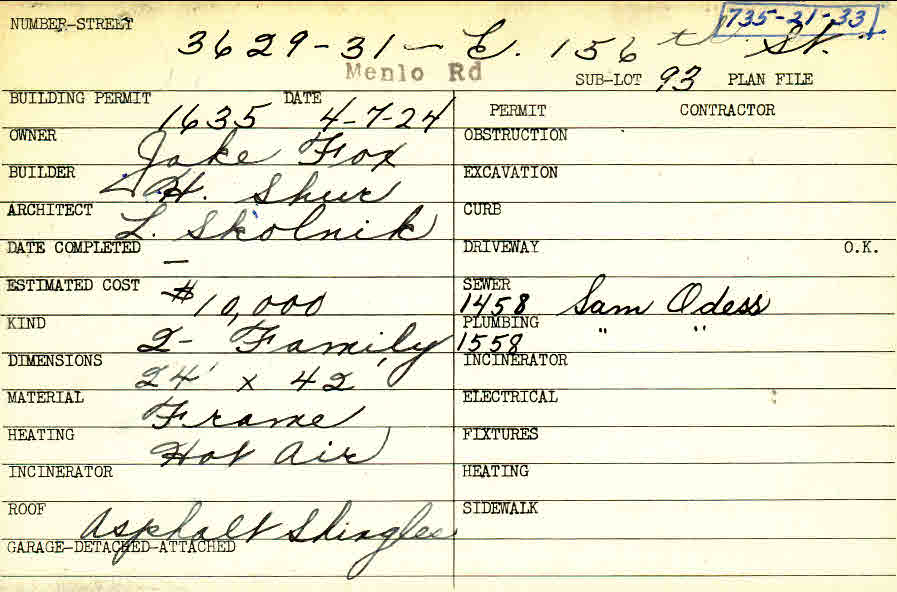 735-21-33
NUMBER-STREET 3629-31- E. 156 th St.
Menlo Rd
SUB-LOT 93 PLAN FILE
BUILDING PERMIT 1635 DATE 4-7-24
PERMIT CONTRACTOR
OWNER Jake Fox
OBSTRUCTION
BUILDER H. Shur
EXCAVATION
ARCHITECT L. Skolnik
CURB
DATE COMPLETED -
DRIVEWAY O.K.
ESTIMATED COST $10,000
SEWER 1458 Sam Odess
KIND 2- Family
PLUMBING 1558 " "
DIMENSIONS 24' x 42'
INCINERATOR
MATERIAL Frame
ELECTRICAL
HEATING Hot Air
FIXTURES
INCINERATOR
HEATING
ROOF Asphalt Shingles
SIDEWALK
GARAGE-DETACHED-ATTACHED